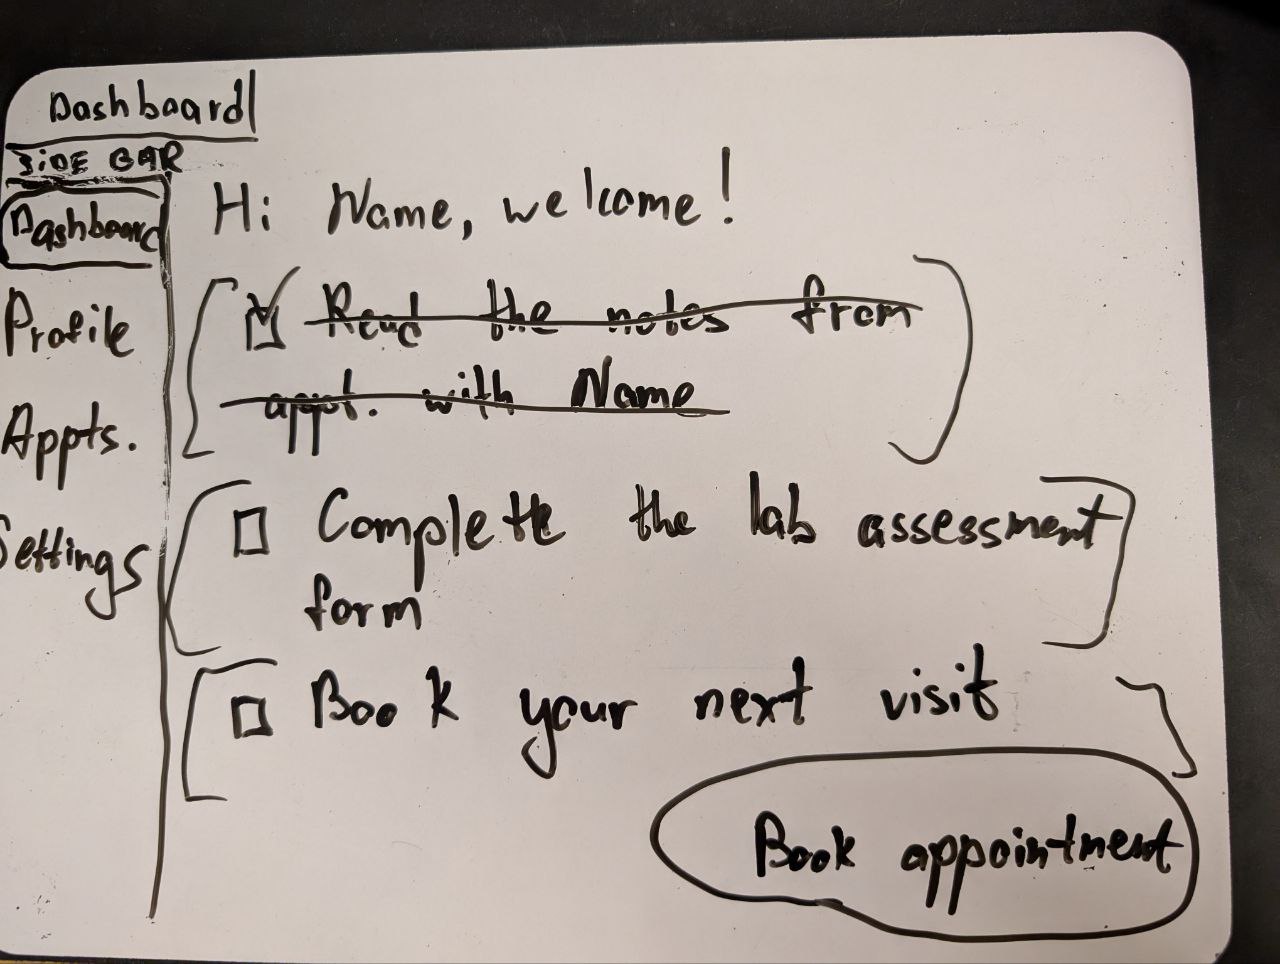 Dashboard
SIDE BAR
Dashboard
Profile
Appts.
Settings
Hi Name, welcome!
Read the notes from
appt. with Name
Complete the lab assessment
form
Book your next visit
Book appointment